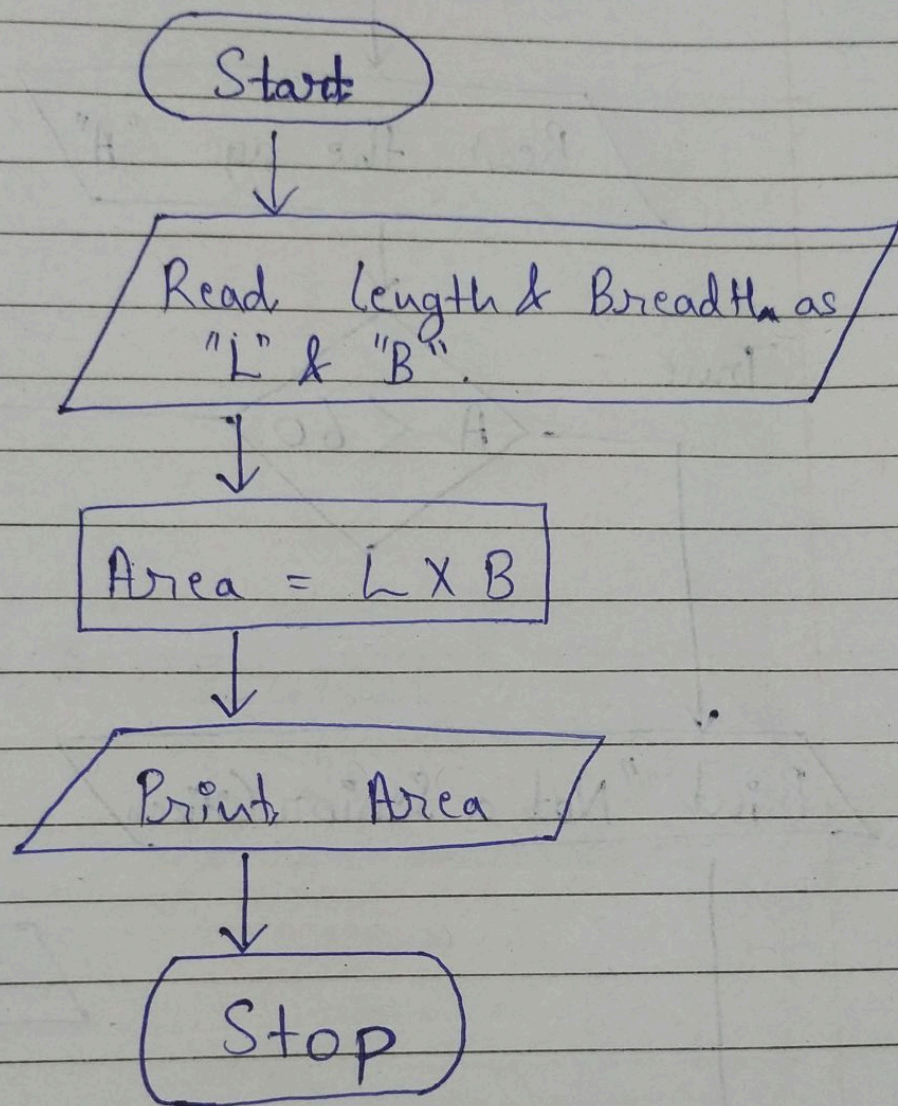 Start
Read length & Breadth as
"L" & "B".
Area = L X B
Print Area
Stop